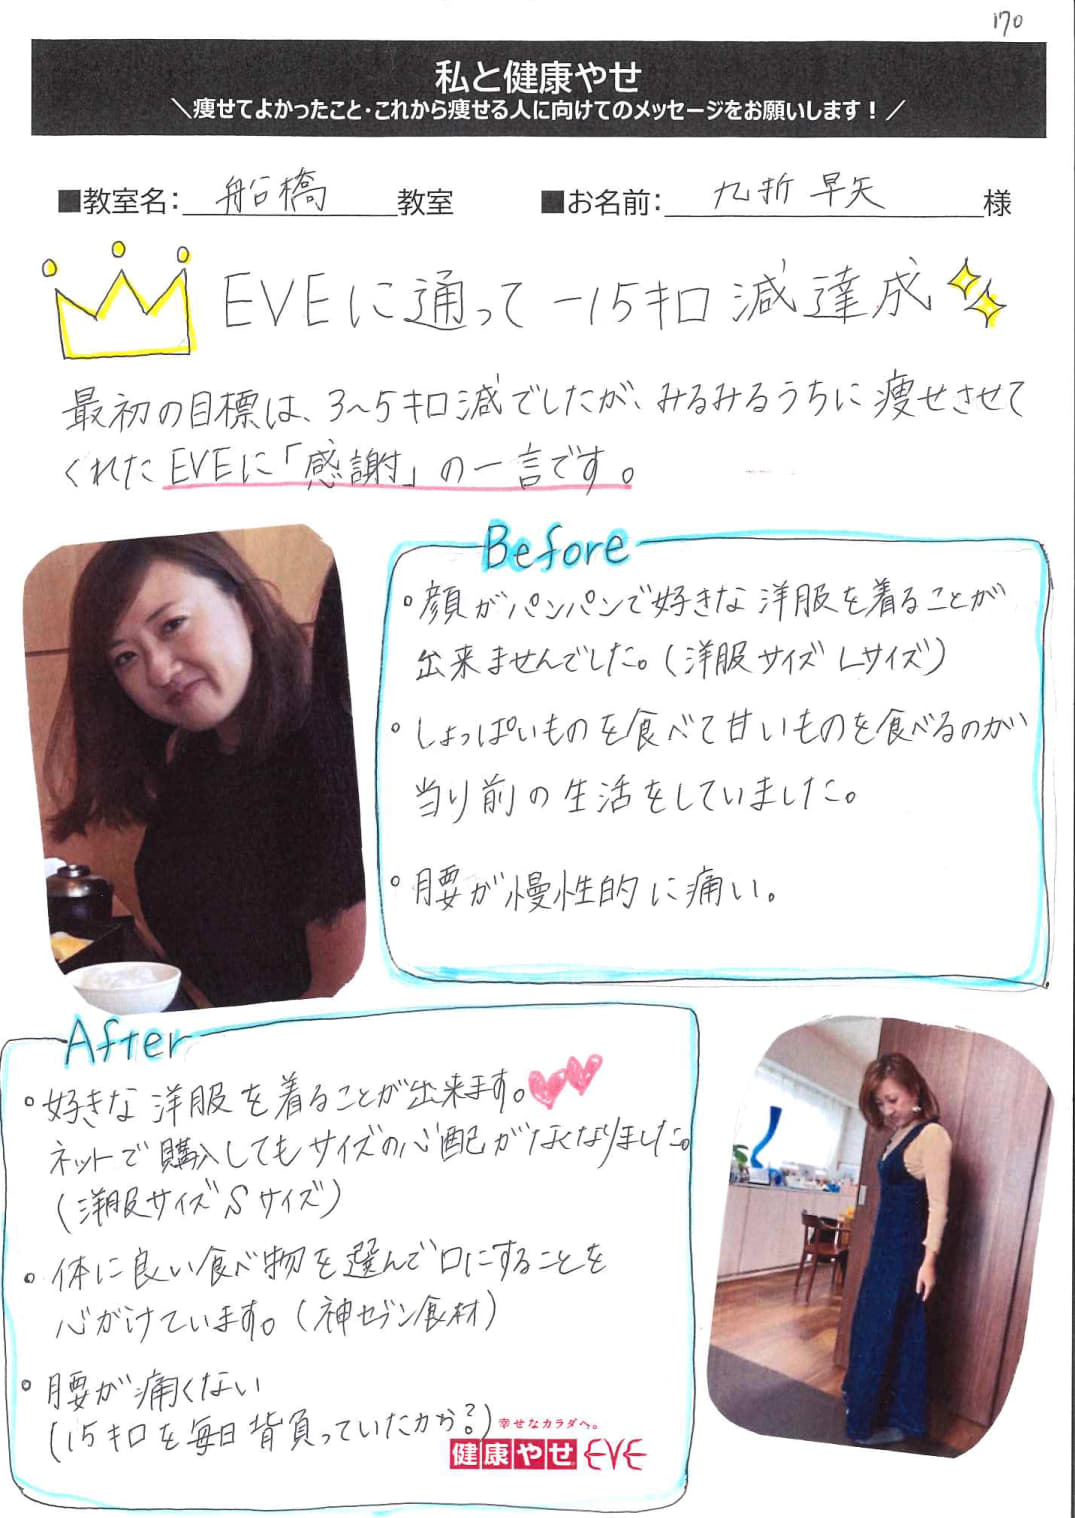 170
私と健康やせ
＼痩せてよかったこと・これから痩せる人に向けてのメッセージをお願いします！／
■教室名： 船橋 教室 ■お名前： 九折 早矢 様
EVEに通って −15キロ 減達成
最初の目標は、3〜5キロ減でしたが、みるみるうちに痩せさせて
くれたEVEに「感謝」の一言です。
Before
・顔がパンパンで好きな洋服を着ることが
出来ませんでした。（洋服サイズ Lサイズ）
・しょっぱいものを食べて甘いものを食べるのが
当り前の生活をしていました。
・腰が慢性的に痛い。
After
・好きな洋服を着ることが出来ます。
ネットで購入してもサイズの心配がなくなりました。
（洋服サイズ Sサイズ）
・体に良い食べ物を選んで口にすることを
心がけています。（神セブン食材）
・腰が痛くない
（15キロを毎日背負っていたから？）
幸せなカラダへ。
健康やせ EVE